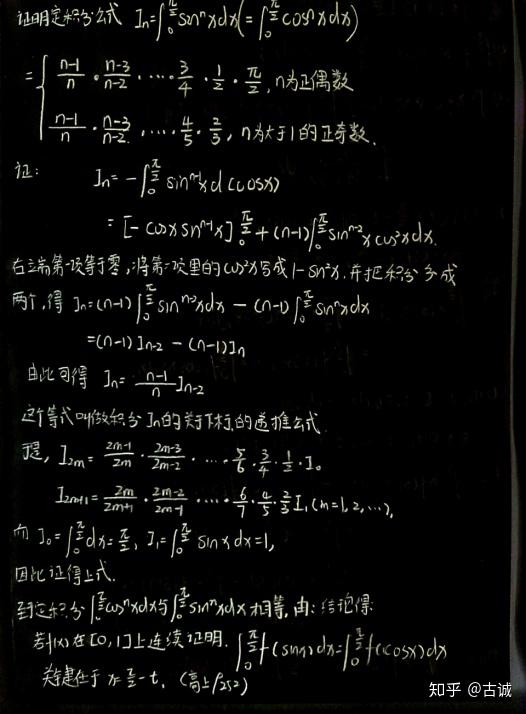 证明定积分公式 Iₙ=∫₀^{π/2} sinⁿxdx(=∫₀^{π/2} cosⁿxdx)
={ (n-1)/n · (n-3)/(n-2) · … · 3/4 · 1/2 · π/2, n为正偶数
(n-1)/n · (n-3)/(n-2) · … · 4/5 · 2/3, n为大于1的正奇数.
证: Iₙ=-∫₀^{π/2} sinⁿ⁻¹xd(cosx)
=[-cosx sinⁿ⁻¹x]₀^{π/2}+(n-1)∫₀^{π/2} sinⁿ⁻²xcos²xdx.
右端第一项等于零,将第二项里的cos²x写成1-sin²x.并把积分分成
两个,得 Iₙ=(n-1)∫₀^{π/2} sinⁿ⁻²xdx-(n-1)∫₀^{π/2} sinⁿxdx
=(n-1)Iₙ₋₂-(n-1)Iₙ
由此可得 Iₙ=(n-1)/n Iₙ₋₂
这个等式叫做积分Iₙ的关于下标的递推公式.
I₂ₘ=(2m-1)/2m · (2m-3)/(2m-2) · … · 5/6 · 3/4 · 1/2 · I₀
I₂ₘ₊₁=2m/(2m+1) · (2m-2)/(2m-1) · … · 6/7 · 4/5 · 2/3 I₁(m=1,2,…),
而 I₀=∫₀^{π/2} dx=π/2, I₁=∫₀^{π/2} sinxdx=1,
因此证得上式.
至定积分∫₀^{π/2} cosⁿxdx与∫₀^{π/2} sinⁿxdx相等,由:结论得:
若f(x)在[0,1]上连续证明. ∫₀^{π/2} f(sinx)dx=∫₀^{π/2} f(cosx)dx
关键在于 x=π/2-t. (高上P252)
知乎 @古诚